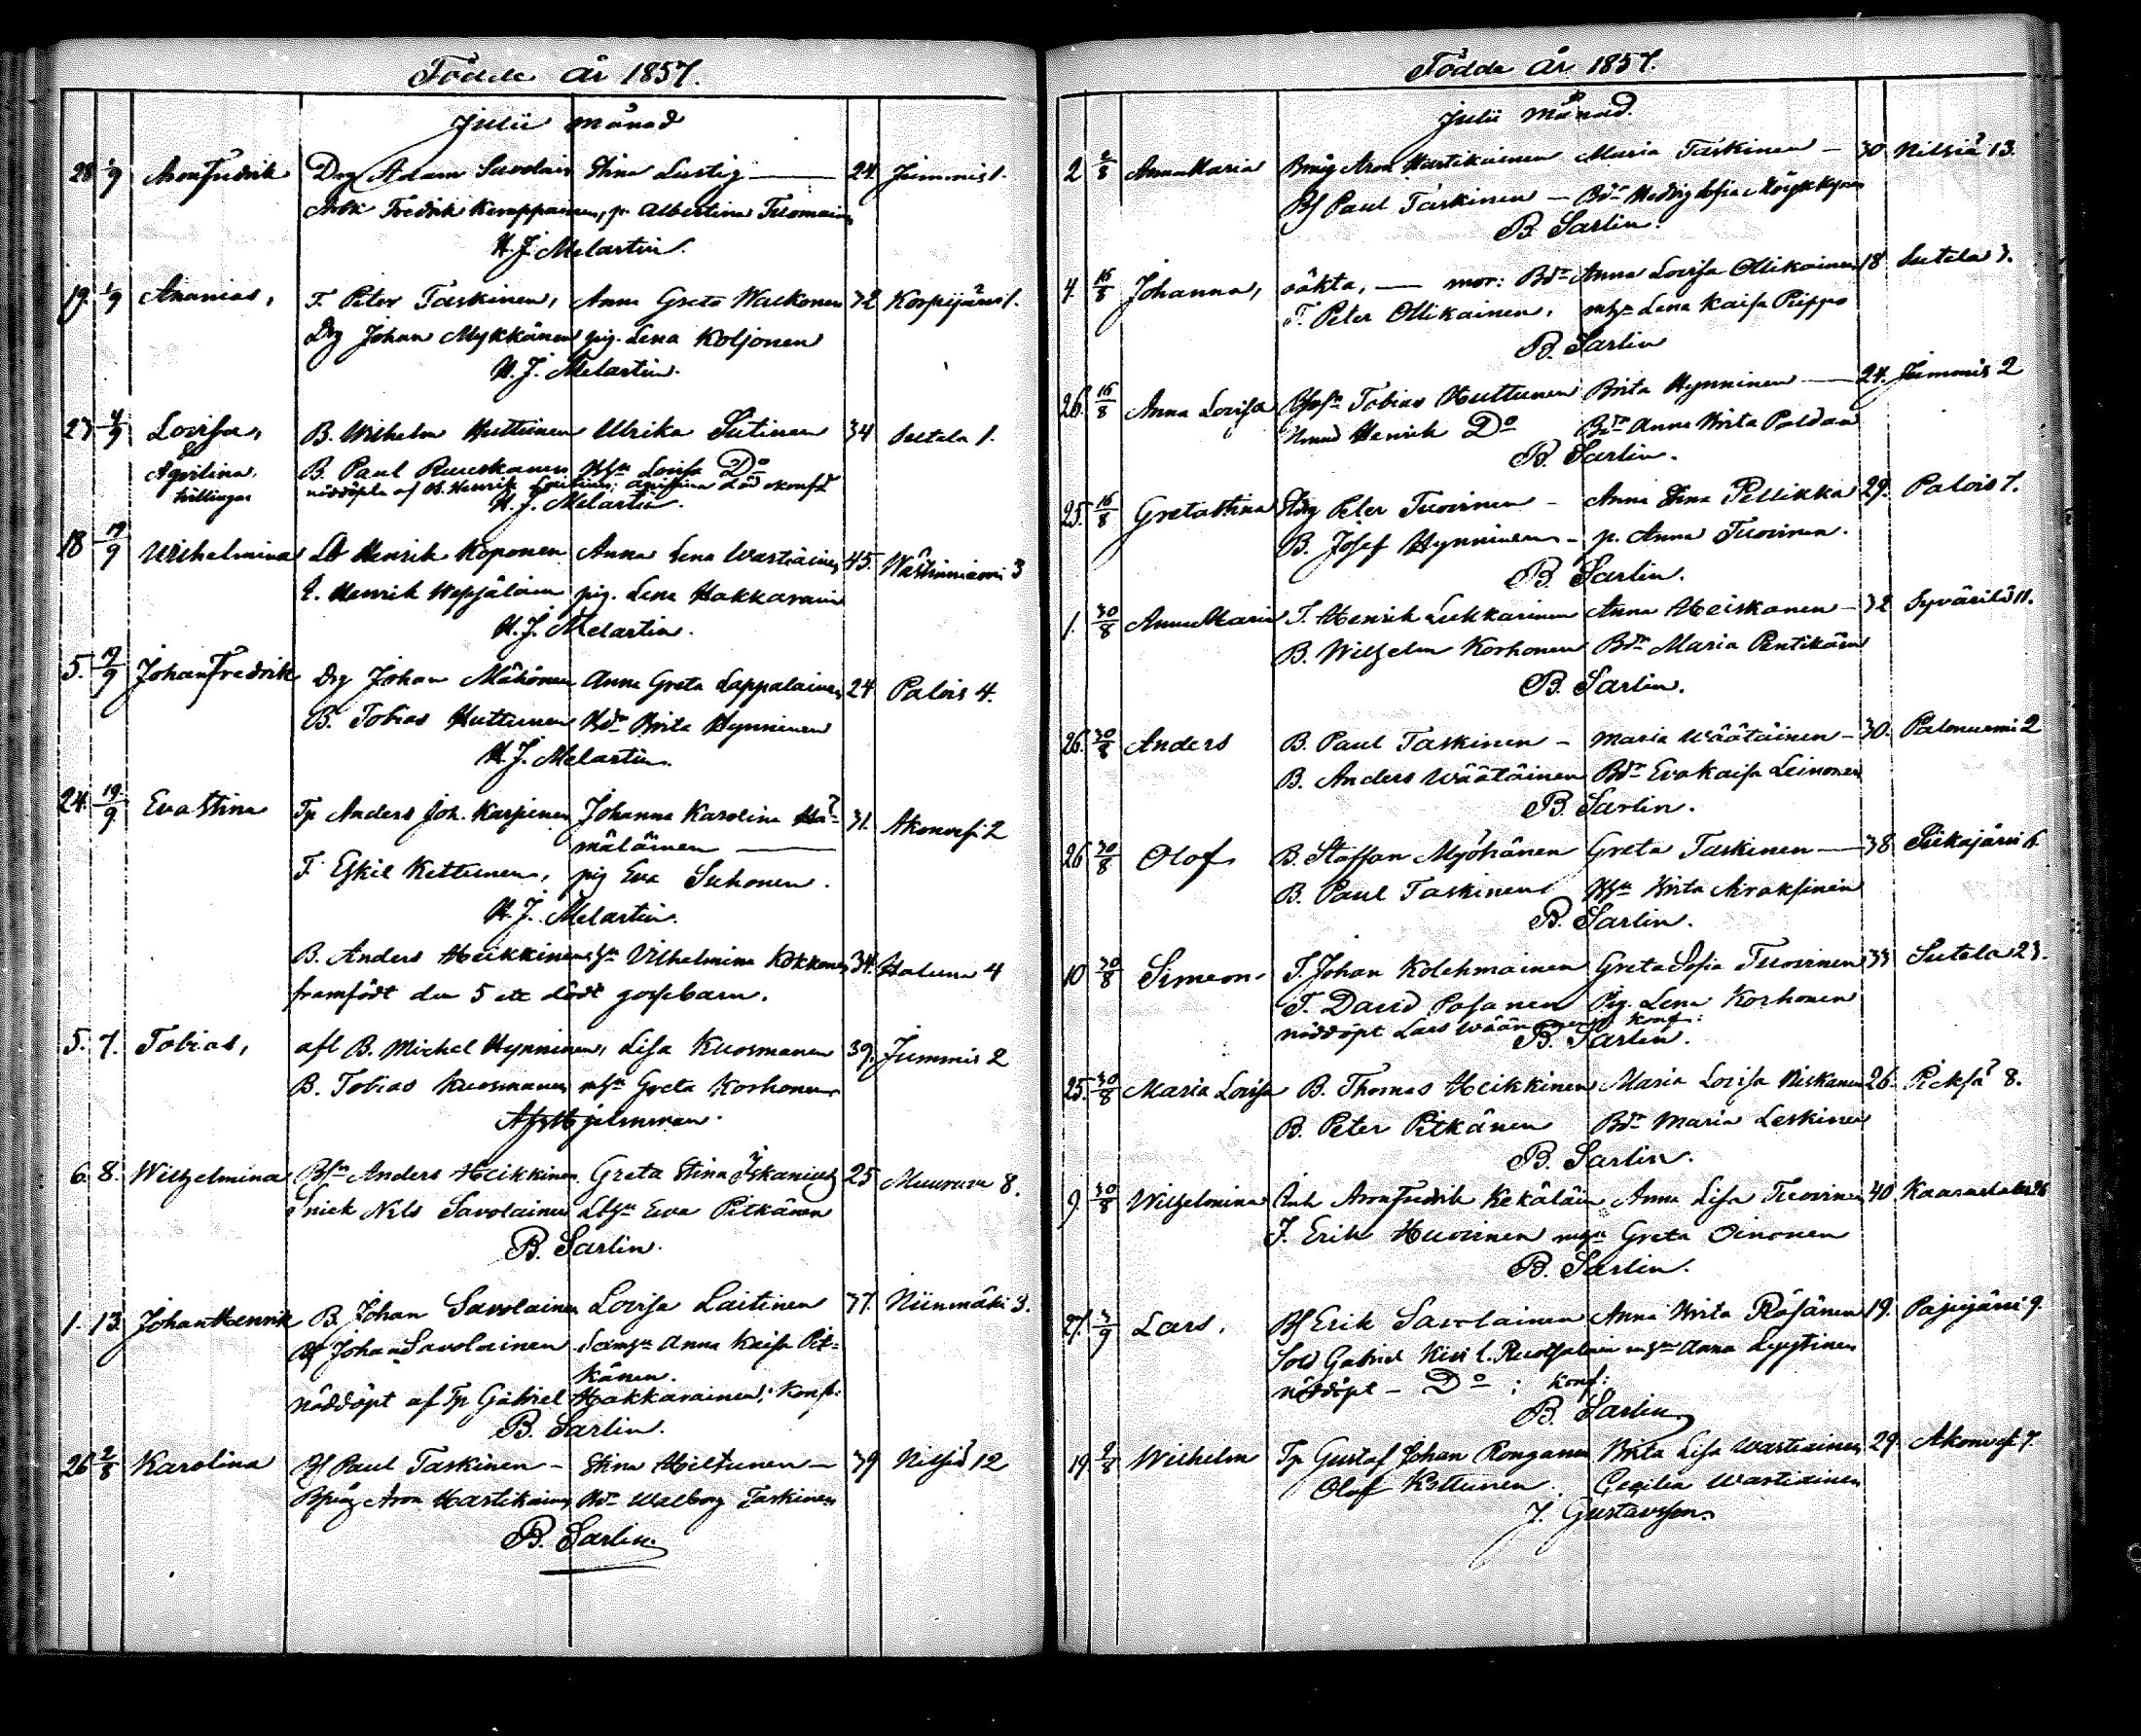 Födde år 1857.
Julii månad
28 1/9 Aron Fredrik Drg Adam Savolain Stina Lustig — 24. Jummis 1.
Fredrik Kemppainen, p. Albertina Tuomain
H. J. Melartin.
19. 1/9 Ananias, T. Peter Taskinen, Anna Greta Wackonen 32 Korpijärvi 1.
Drg Johan Mykkänen pig. Lena Koljonen
H. J. Melartin.
23 4/9 Lovisa, B. Wilhelm Huttunen Ulrika Sutinen 34 Sutela 1.
&
Aqvilina, B. Paul Ruuskanen Hsn Lovisa Do
tvillingar nöddöpta af B. Henrik
H. J. Melartin.
18 19/9 Wilhelmina Lb Henrik Koponen Anna Lena Wartiainen 45. Västinniemi 3
I. Henrik Wepsäläin pig. Lena Hakkarain
H. J. Melartin.
5. 19/9 Johan Fredrik Drg Johan Mähönen Anna Greta Lappalainen 24 Palois 4.
B. Tobias Huttunen Bdr Brita Hynninen
H. J. Melartin.
24. 19/9 Eva Stina Tp Anders Joh. Karpinen Johanna Karolina Hä- 31. Akonvesi 2
mäläinen —
T. Eskil Kettunen, pig Eva Suhonen.
H. J. Melartin.
B. Anders Heikkinen Vilhelmina Kokkonen 34. Haluna 4
framfödt den 5 ett dödt gossebarn.
5. 7. Tobias, afl B. Michel Hynninen, Lisa Kuosmanen 39. Jummis 2
B. Tobias Kuosmanen mhsn Greta Korhonen
6. 8. Wilhelmina Bsn Anders Heikkinen Greta Stina Iskanius 25 Muuruve 8.
Snick Nils Savolainen Lbhn Eva Pitkänen
B. Sarlin.
1. 13. Johan Henrik B. Johan Savolainen Lovisa Laitinen 37. Niinimäki 3.
Bs Johan Savolainen Anna Kaisa Pit-
känen.
nöddöpt af Tp Gabriel Hakkarainen; Konf:
B. Sarlin.
26 2/8 Karolina Bs Paul Taskinen — Stina Miettunen — 39 Nilsiä 12
Aron Hartikain, Bdr Walborg Taskinen
B. Sarlin.
Födde År 1857.
Julii månad.
2 2/8 Anna Maria Aron Hartikainen Maria Taskinen — 30 Nilsiä 13.
Bs Paul Taskinen — Bdr Hedvig Sofia
B. Sarlin.
4. 16/8 Johanna, oäkta, — mor: Bdr Anna Lovisa Ollikainen 18 Sutela 3.
T. Peter Ollikainen, mhn Lena Kaisa Piippo
B. Sarlin
26. 16/8 Anna Lovisa Tobias Huttunen Brita Hynninen — 24. Jummis 2
Henrik Do Bdr Anna Brita Poldan
B. Sarlin.
25. 16/8 Greta Stina Peter Tuovinen — Anna Stina Pellikka 29. Palois 7.
B. Josef Hynninen — p. Anna Tuovinen.
B. Sarlin.
1. 30/8 Anna Maria T. Henrik Lukkarinen Anna Heiskanen — 32 Syväriki 11.
B. Wilhelm Korhonen Bdr Maria Pentikäin
B. Sarlin.
26. 30/8 Anders B. Paul Taskinen — Maria Wäätäinen — 30. Palonurmi 2
B. Anders Wäätäinen Bdr Eva Kaisa Leinonen
B. Sarlin.
26 30/8 Olof B. Staffan Myöhänen Greta Taskinen — 38 Siikajärvi 6.
B. Paul Taskinen Hsn Brita Airaksinen
B. Sarlin.
10 30/8 Simeon I. Johan Kolehmainen Greta Sofia Tuovinen 33 Sutela 23.
T. David Pasanen Pig. Lena Korhonen
nöddöpt Lars Konf:
B. Sarlin.
25. 30/8 Maria Lovisa B. Thomas Heikkinen Maria Lovisa Niskanen 26. Pieksä 8.
B. Peter Pitkänen Bdr Maria Leskinen
B. Sarlin.
9. 30/8 Wilhelmina Inh Aron Fredrik Kekäläin Anna Lisa Tuovinen 40.
I. Erik Huovinen mhn Greta Oinonen
B. Sarlin.
27. 3/9 Lars. Bs Erik Savolainen Anna Brita Räsänen 19. Pajujärvi 9.
Sold Gabriel Kivi l. mhn Anna Lyytinen
nöddöpt — Do; Konf:
B. Sarlin
19 9/8 Wilhelm Tp Gustaf Johan Ronganen Brita Lisa Wartiainen 29. Akonvesi 7.
Olof Kettunen. Cecilia Wartiainen
J. Gustavsson.